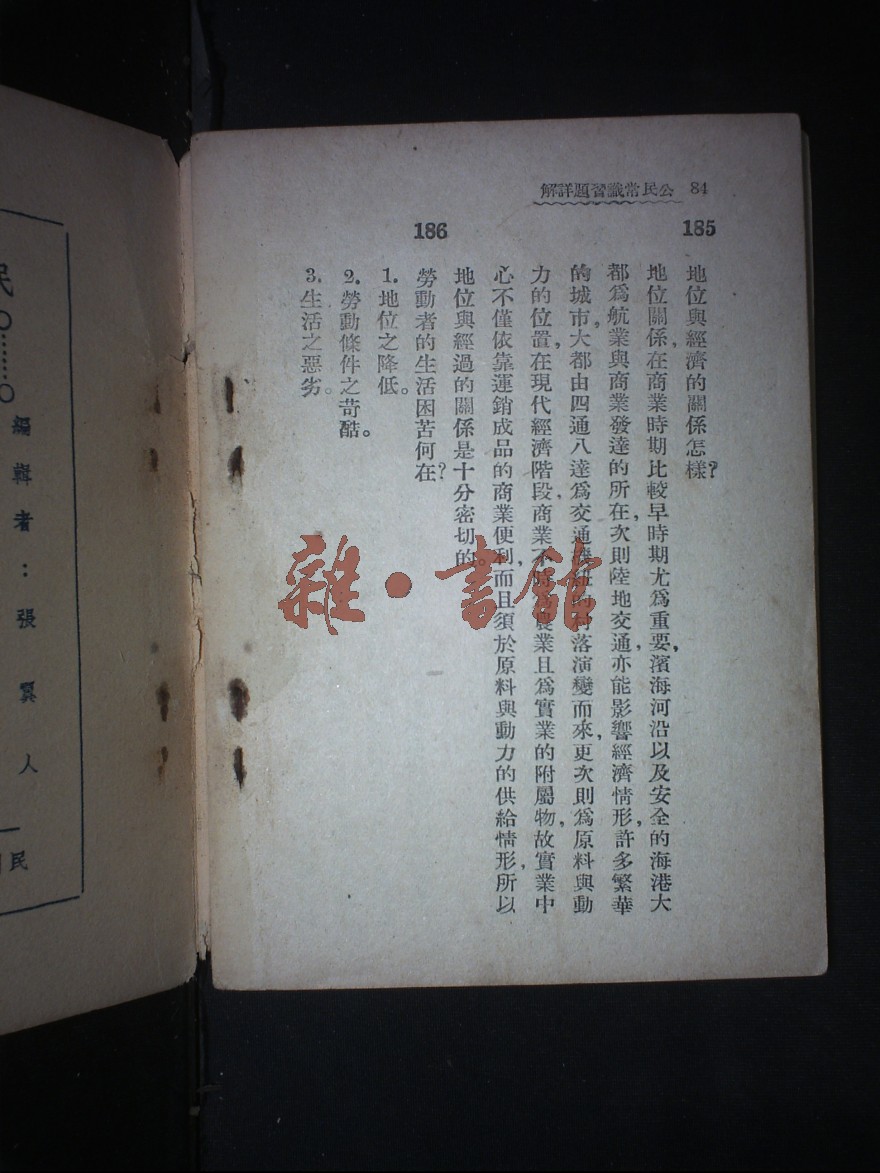 84 公民常識習題詳解
185
地位與經濟的關係怎樣?
地位關係,在商業時期比較早時期尤爲重要,濱海河沿以及安全的海港大
都爲航業與商業發達的所在,次則陸地交通,亦能影響經濟情形,許多繁華
的城市,大都由四通八達爲交通 的 落演變而來,更次則爲原料與動
力的位置,在現代經濟階段,商業不 農業且爲實業的附屬物,故實業中
心不僅依靠運銷成品的商業便利,而且須於原料與動力的供給情形,所以
地位與經過的關係是十分密切的。
186
勞動者的生活困苦何在?
1.地位之降低。
2.勞動條件之苛酷。
3.生活之惡劣。
民
編輯者:張翼人
民
雜·書館